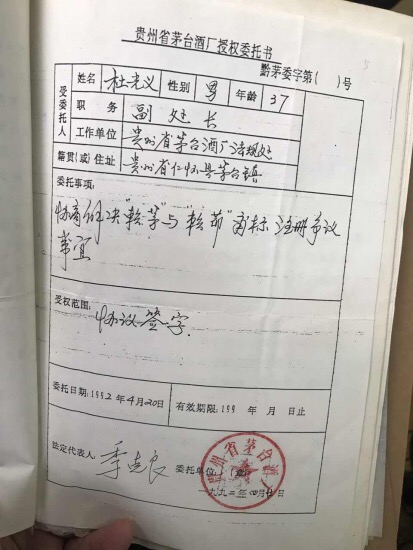 贵州省茅台酒厂授权委托书
黔茅委字第( )号
受委托人
姓名 杜光义 性别 男 年龄 37
职务 副处长
工作单位 贵州省茅台酒厂法规处
籍贯(或)住址 贵州省仁怀县茅台镇
委托事项:
协商解决"赖茅"与"赖茆"商标注册争议
事宜
受权范围:
协议签字.
委托日期:1992年4月20日 有效期限:199 年 月 日止
法定代表人: 季克良 委托单位: (章)
贵州省茅台酒厂
一九九二年四月 日